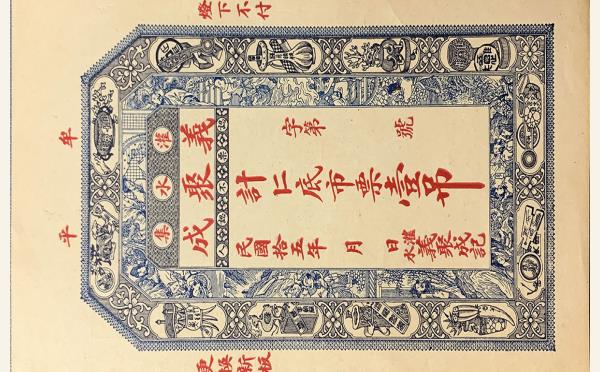 牟平
燈下不付
更換新板
淮水集
義聚成
字第 號
計仁底市票壹吊
民國拾五年 月 日
淮水義聚成記